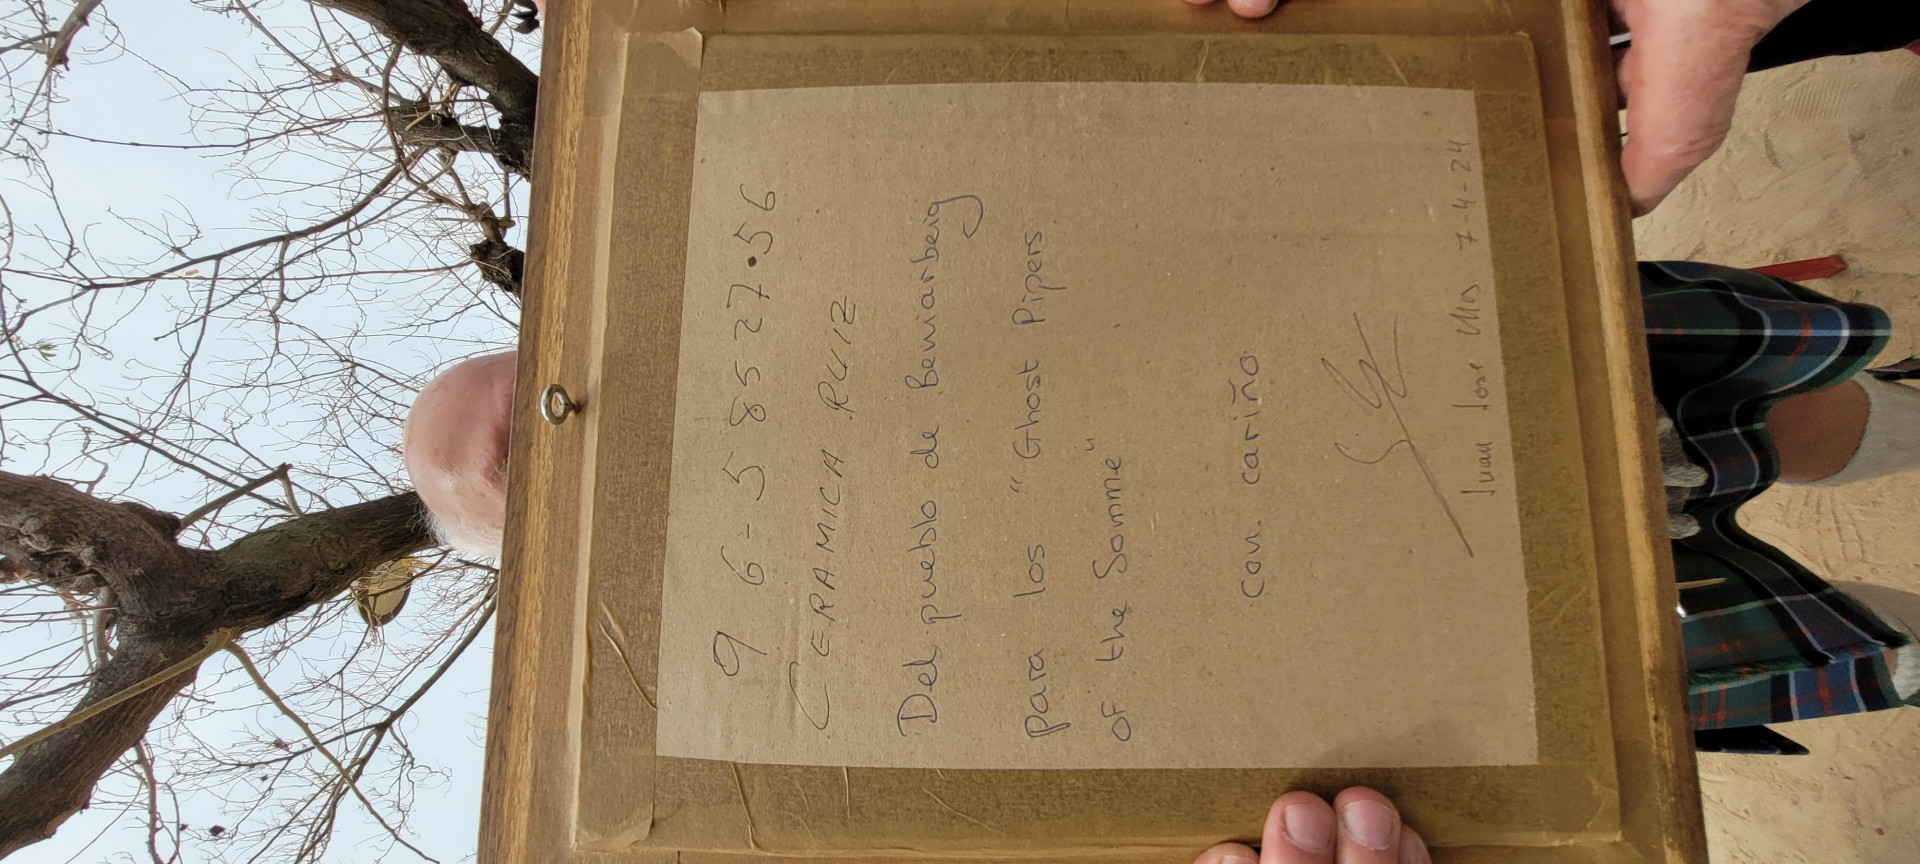 96-58527.56
CERAMICA RUIZ
Del pueblo de Beniarbeig
para los "Ghost Pipers
of the Somme"
con cariño
Juan José Mas 7-4-24